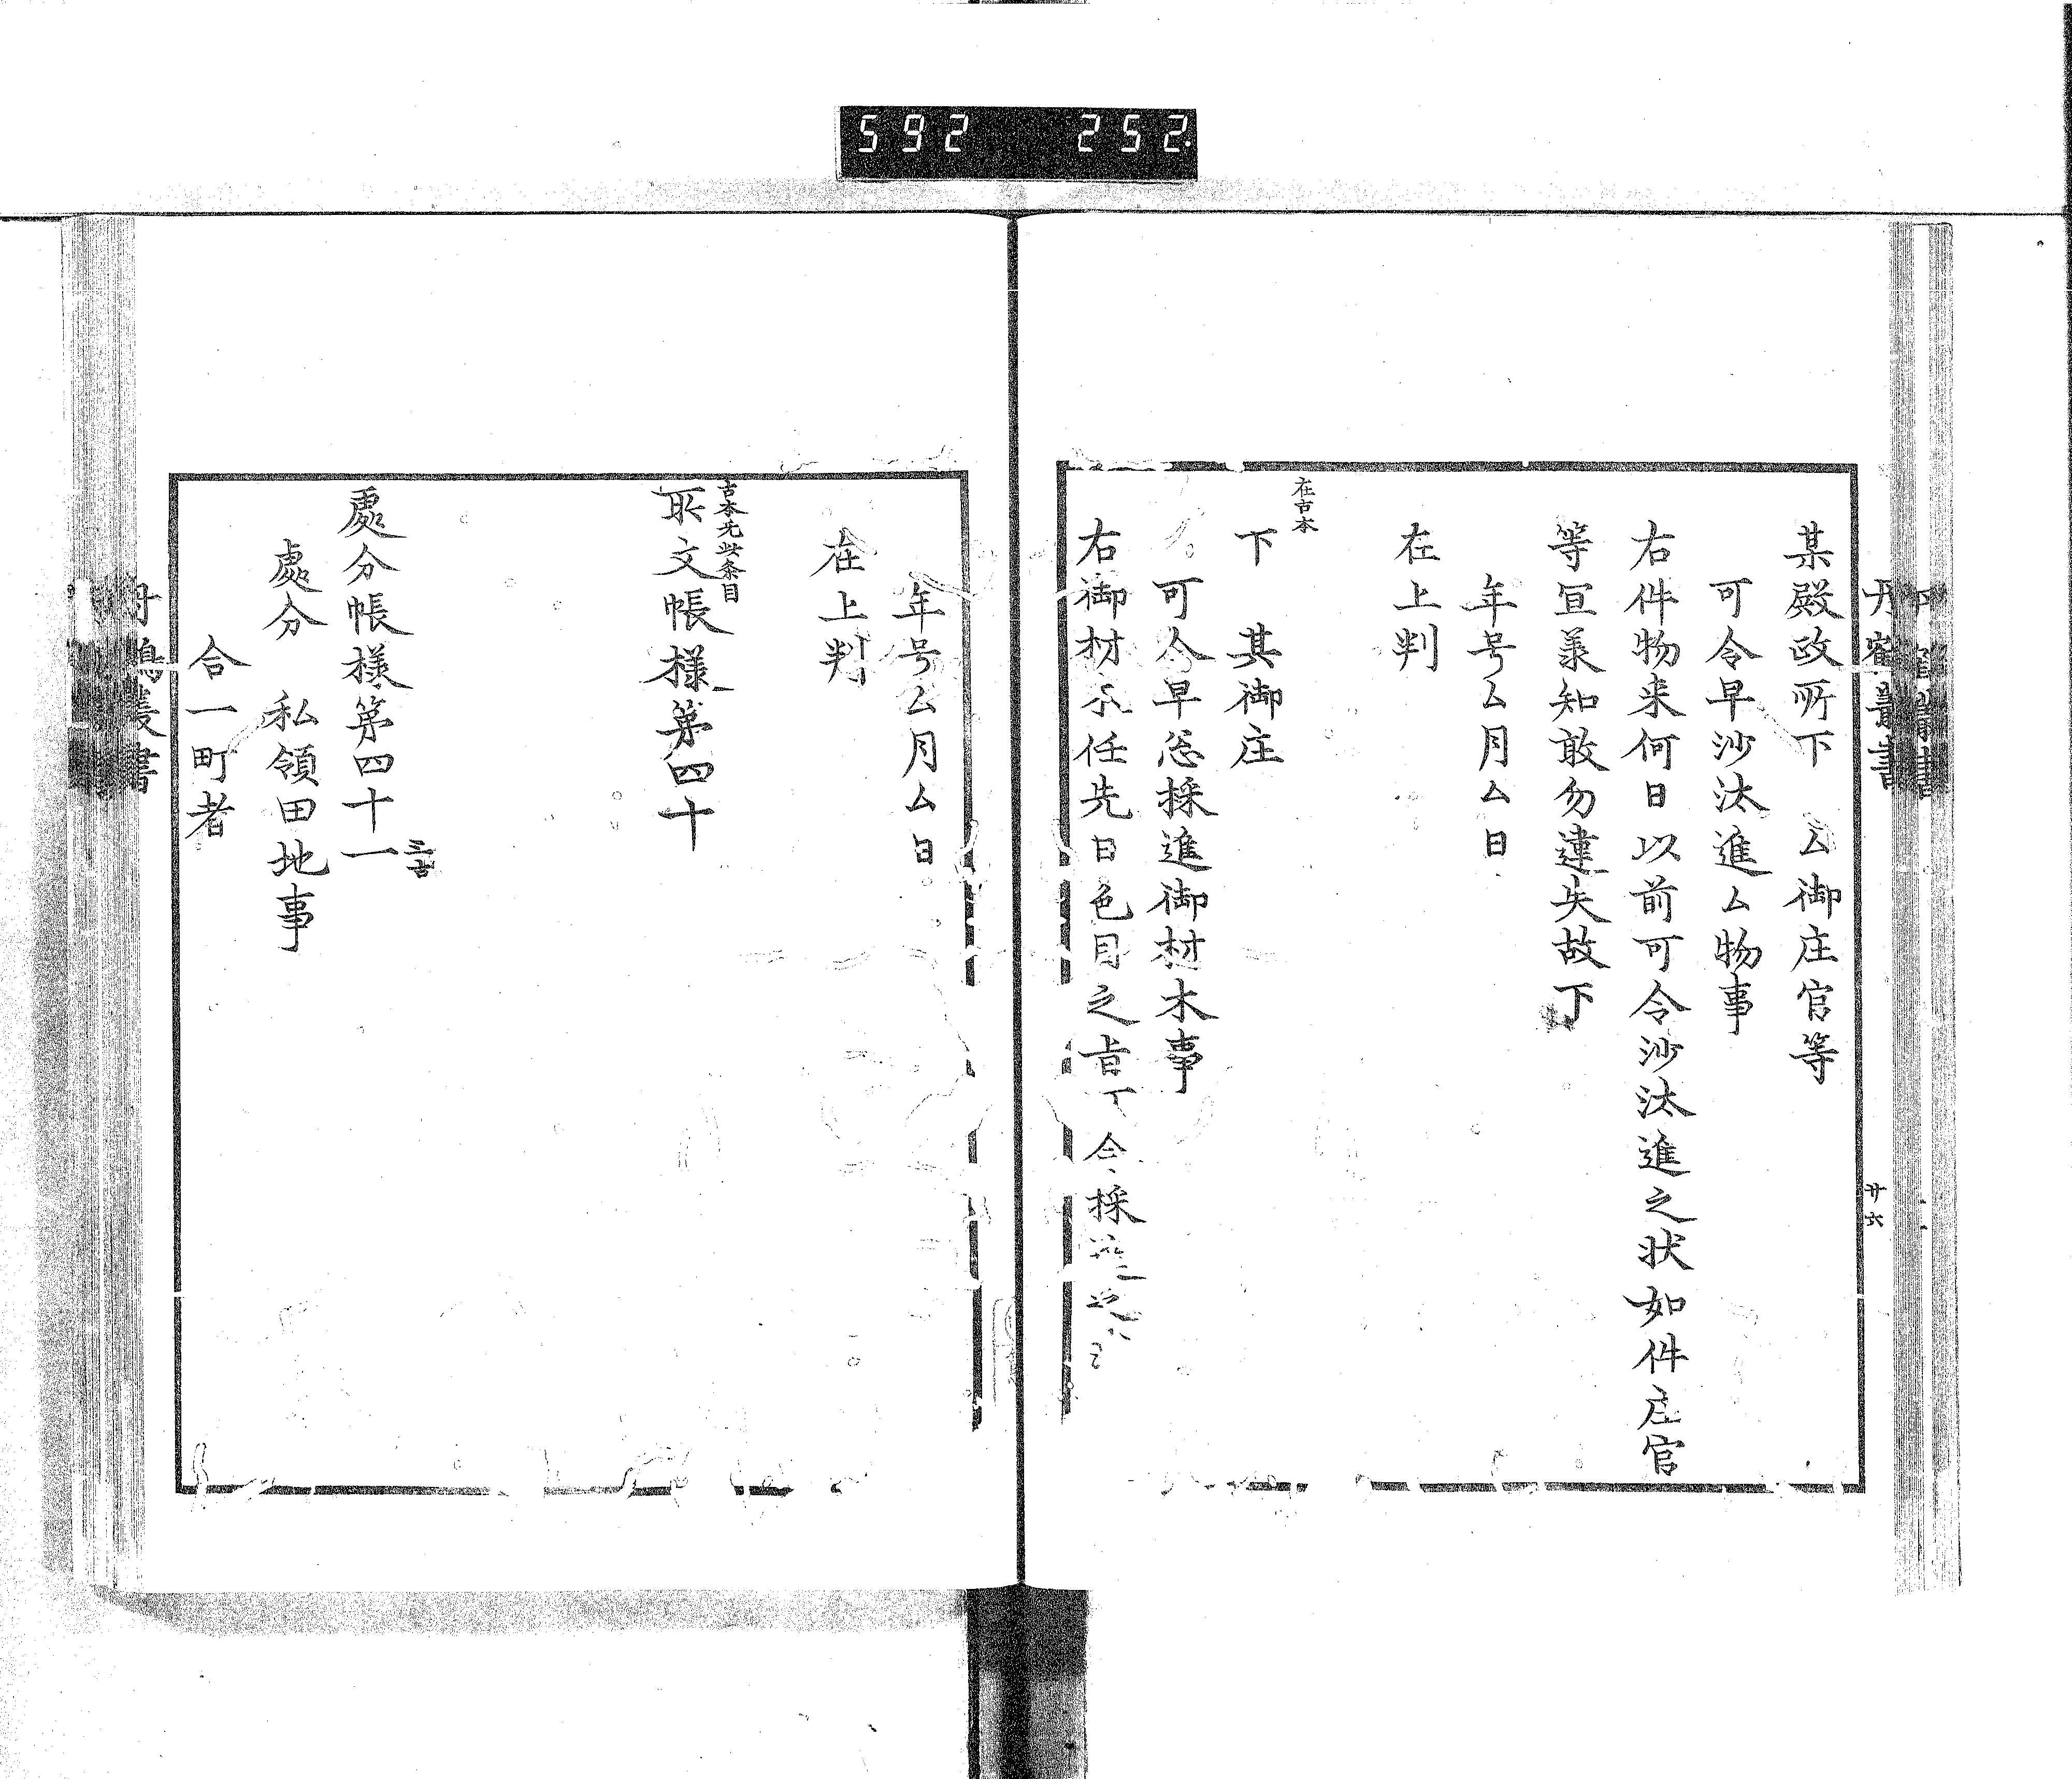 592 252
丹鶴叢書
廿六
某殿政所下　厶御庄官等
可令早沙汰進厶物事
右件物来何日以前可令沙汰進之状如件庄官
等宜羕知敢勿違失故下
年号厶月厶日
在上判
在古本
下　其御庄
可令早忩採進御材木事
右御材木任先日色目之旨可令採進
年号厶月厶日
在上判
古本无此条目
取文帳様第四十
處分帳様第四十一
三古
處分　私領田地事
合一町者
丹鶴叢書